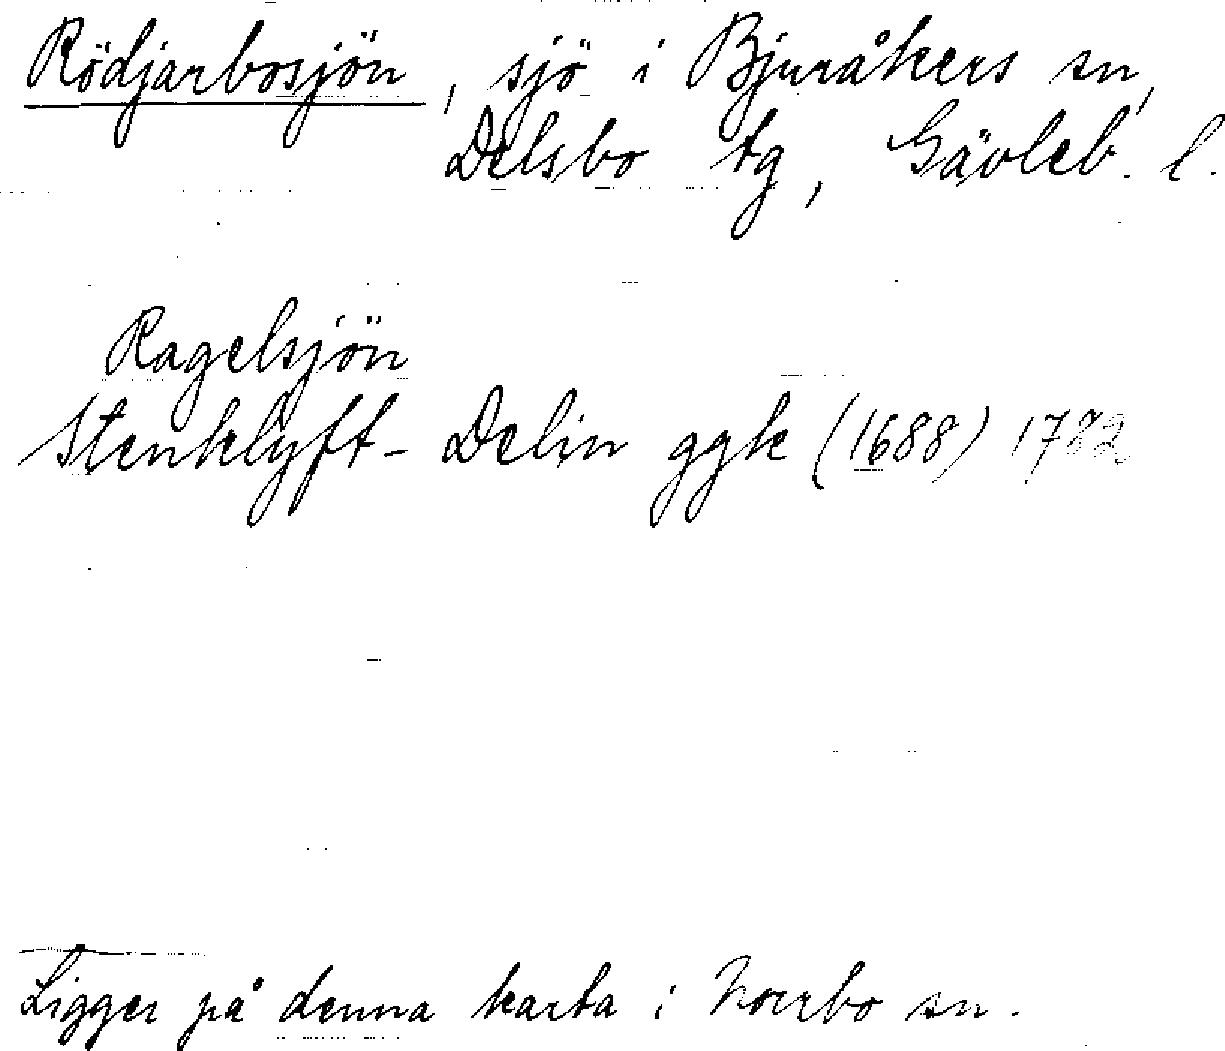 Rödjarbosjön, sjö i Bjuråkers sn,
Delsbo tg, Gävleb. l.
Ragelsjön
Stenklyft- Delin ggk (1688) 1782
Ligger på denna karta i Norrbo sn.